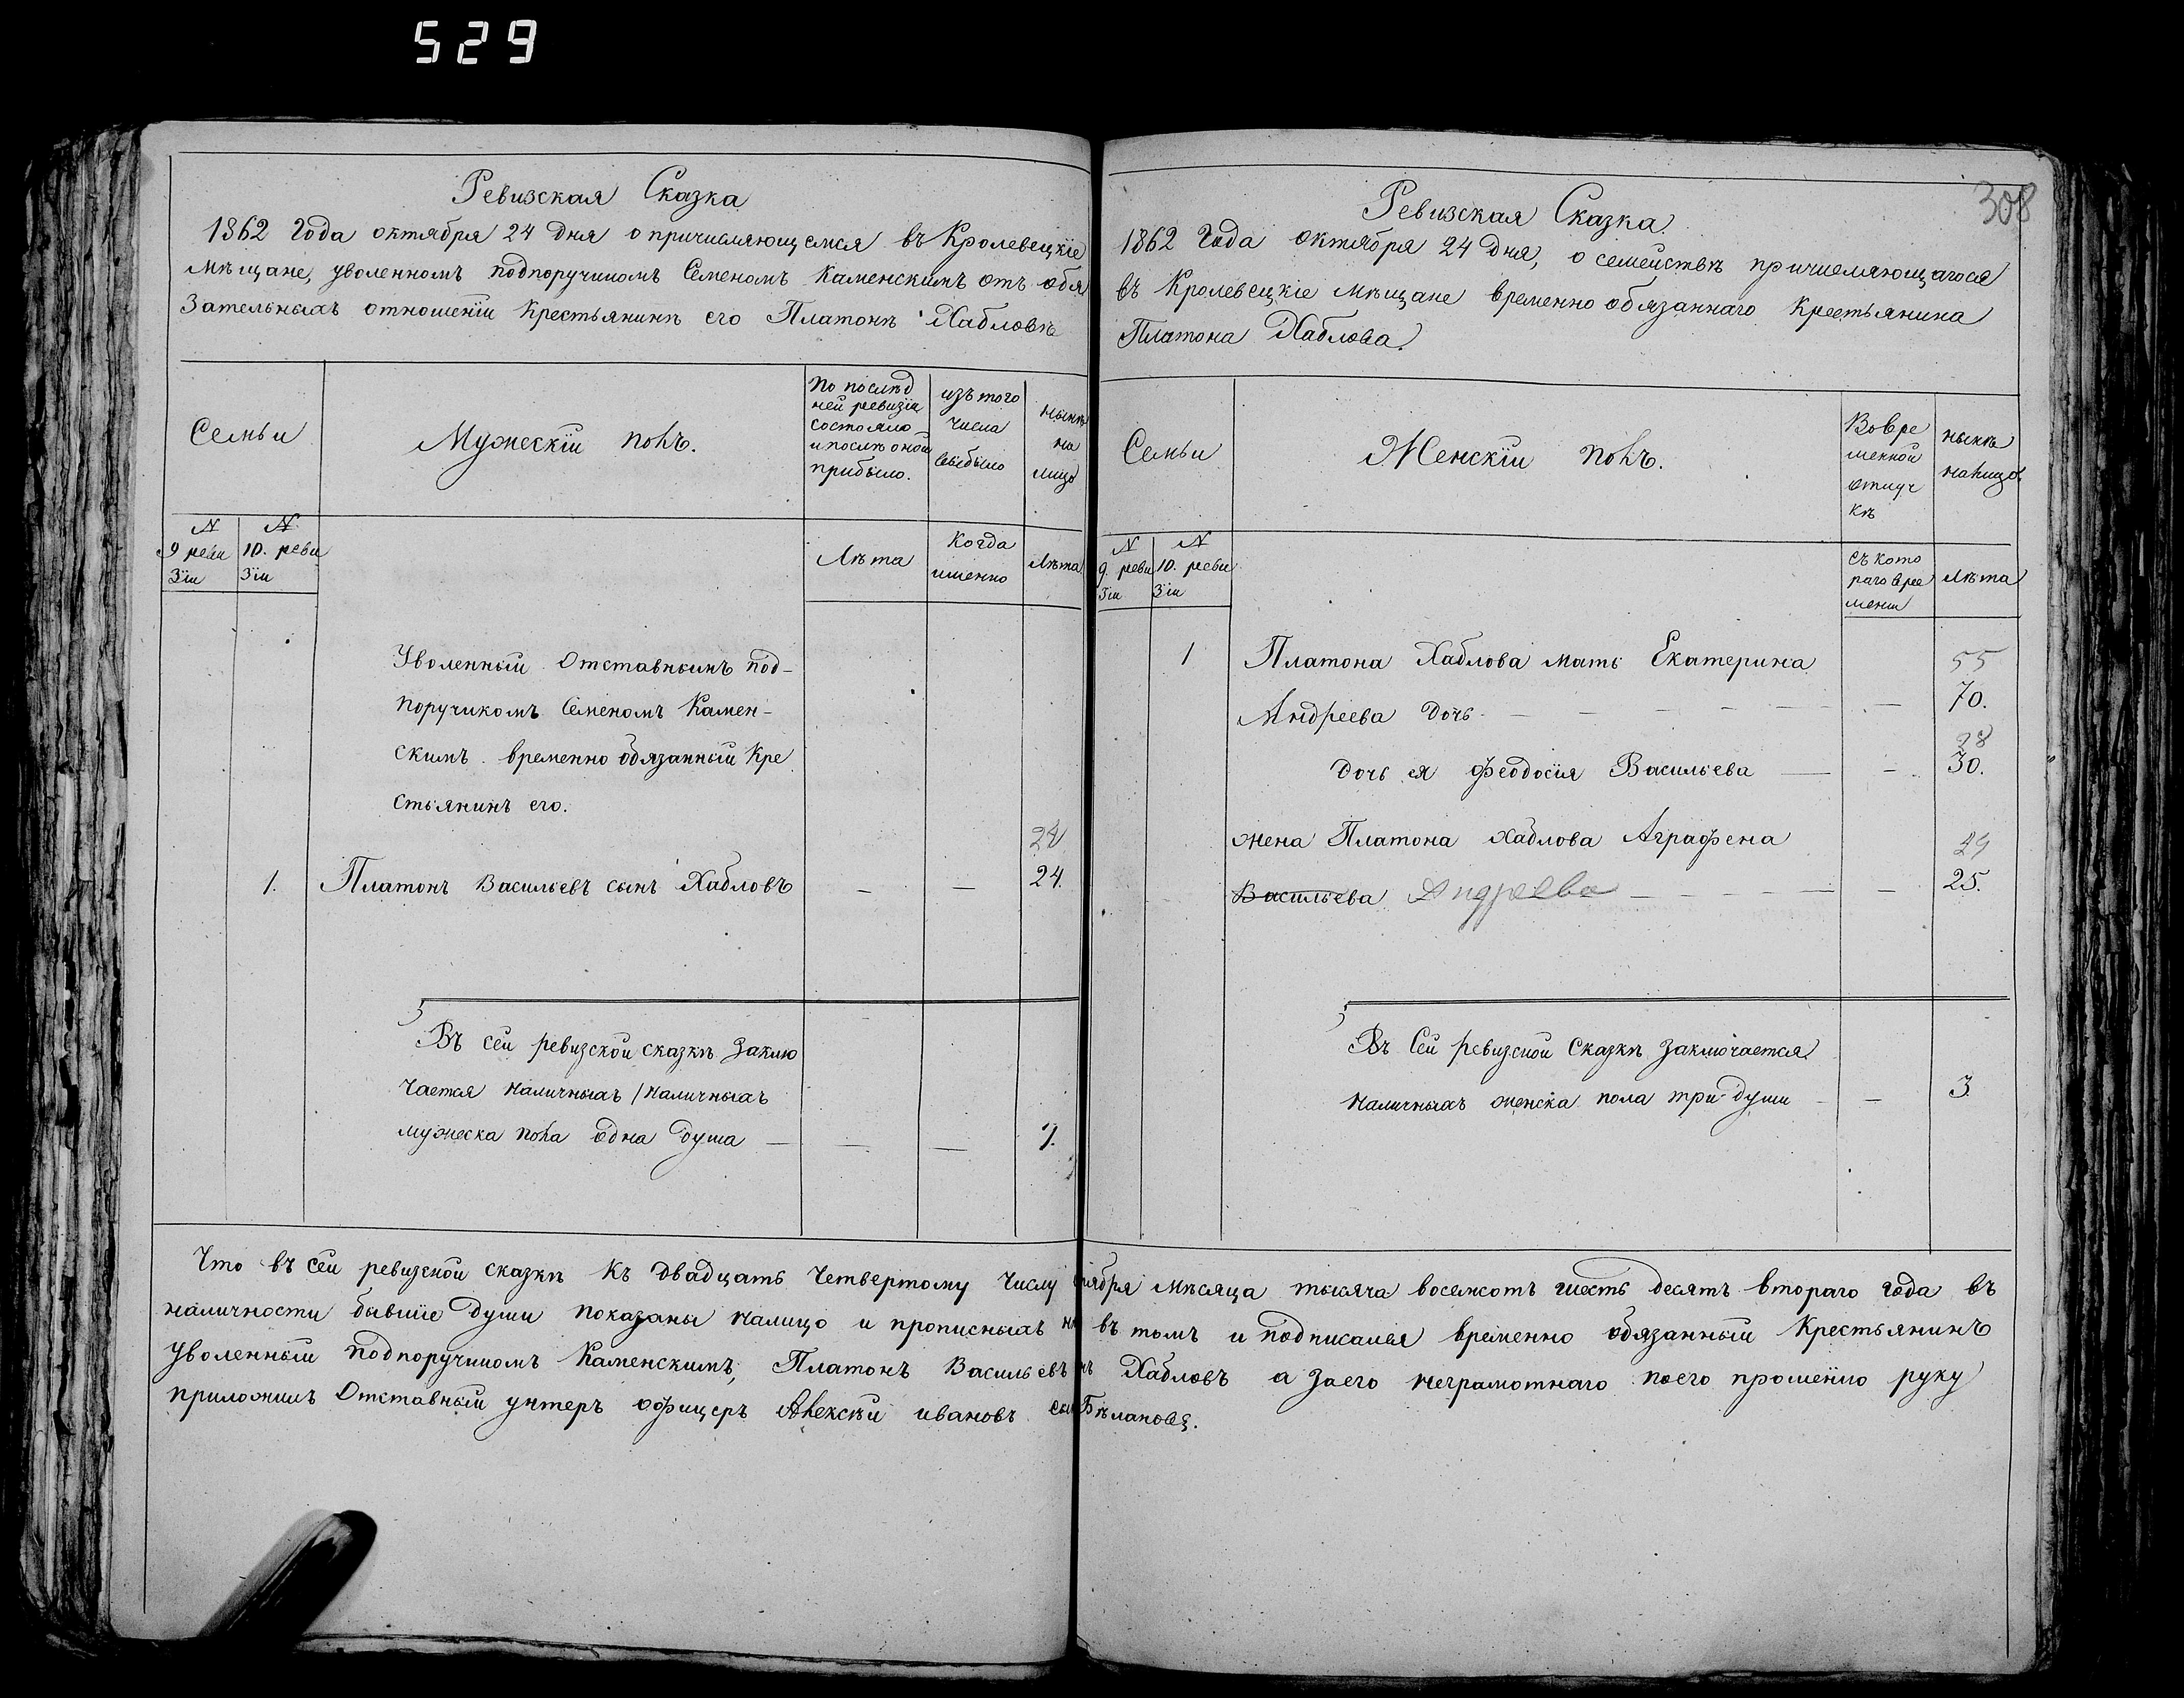 529
Ревизская Сказка
1862 Года октября 24 дня о причисляющемся въ Кролевецкіе
Мѣщане, уволенномъ подпоручикомъ Семеномъ Каменскимъ отъ обя
зательныхъ отношеній Крестьянинѣ его Платонѣ Хабловѣ
Семьи
Мужескій полъ.
По послѣд
ней ревизіи
состояло
и послѣ оной
прибыло.
изъ того
числа
выбыло
нынѣ
на
лицо
№
9 реви
зіи
№
10. реви
зіи
Лѣта
Когда
именно
Лѣта
Уволенный Отставнымъ под-
поручикомъ Семеномъ Камен-
скимъ временно обязанный Кре
стьянинъ его.
24
1. Платонъ Васильевъ сынъ Хабловъ — — 24.
Въ сей ревизской сказкѣ заклю
чается наличныхъ / наличныхъ
мужеска пола одна душа — — — 1.
308
Ревизская Сказка
1862 Года октября 24 дня, о семействѣ причисляющагося
въ Кролевецкіе Мѣщане временно обязаннаго Крестьянина
Платона Хаблова.
Семьи
Женскій полъ.
Во вре
менной
отлуч
кѣ
нынѣ
налицо
№
9. реви
зіи
№
10. реви
зіи
съ кото
раго вре
мени
Лѣта
1 Платона Хаблова мать Екатерина 55
Андреева дочь — — — — — — 70.
28
дочь ея Феодосія Васильева — — 30.
жена Платона Хаблова Аграфена 29
Васильева Андреева — — — — — 25.
Въ Сей ревизской Сказкѣ заключается
наличныхъ женска пола три души — — 3.
Что въ сей ревизской сказкѣ Къ двадцать Четвертому Числу мѣсяца тысяча восемсотъ шесть десятъ втораго года въ
наличности бывшіе души показаны налицо и прописныхъ въ томъ и подписался временно обязанный Крестьянинъ
уволенный подпоручикомъ Каменскимъ, Платонъ Васильевъ Хабловъ а за его неграмотнаго по его прошенію руку
приложилъ Отставный унтеръ офицеръ Алексѣй ивановъ Бѣлановъ.